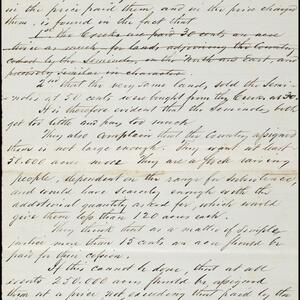 in the price paid them, and in the price charged
them, is found in the fact that
1st the Creeks are paid 30 cents an acre
for lands adjoining the Country
ceded by the Seminoles, on the North and East, and
precisely similar in character.
2nd that the very same lands, sold the Semi-
noles at 50 cents were bought from the Creeks at 30.
It is therefore evident that the Seminoles, both
get too little and pay too much.
They also complain that the Country assigned
them is not large enough. They want at least
50.000 acres more. They are a stock raising
people, dependent on the range for subsistence,
and would have scarcely enough with the
additional quantity asked for, which would
give them less than 120 acres each.
They think that as a matter of simple
justice more than 15 cents an acre should be
paid for their cession.
If this cannot be done, that at all
events 250.000 acres should be assigned
them at a price not exceeding that paid by the